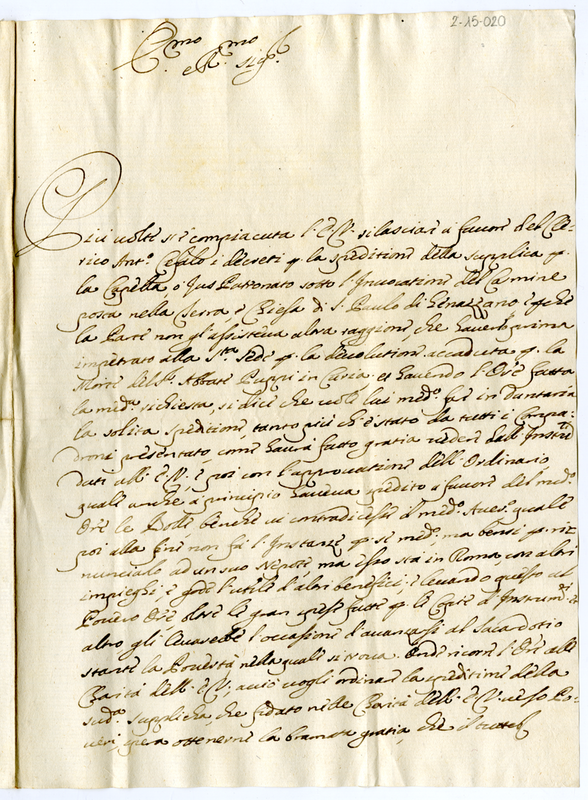 2-15-020
Em.mo e R.mo Sig.r
Più volte si è compiaciuta l'E.V. rilasciare à favore del Cle-
rico Ant.o i decreti p la speditione della supplica p
la Capella ò Jus Patronato sotto l'Invocatione del Carmine
posta nella Terra e Chiesa di S. Paulo di Genazzano e p che
la Parte non gl'assisteva altra raggione che haverlo prima
impetrato alla S.ta Sede p la devolutione accaduta p la
Morte del S.r Abbate in Curia et havendo l'Ore fatta
la med.a richiesta, si dice che vole lui med.o far in Dattaria
la solita speditione, tanto più che è stato da tutti i Compa-
droni presentato come haverà fatto gratia vedere dall'Instru.ti
dati all'E.V. e poi con l'approvatione dell'Ordinario
quale anche à principio haveva spedito à favore del med.o
Ore le Bolle benche vi contradicesse il med.o quale
poi alla fine non fa l'Instanze p se med.o ma bensi p ri-
nunciale ad un suo Nepote ma esso sta in Roma, con altri
impieghi, e gode l'utile d'altri benefici, e levando questo al
Povero Ore oltre le gran spese fatte p le d'Instrum.ti e
altro gli levarebbe l'occasione d'avanzarsi al Sacerdotio
stante la Povertà nella quale si trova. Onde ricorre l'Ore alla
Carità dell'E.V. acciò vogli ordinare la speditione della
sud.a supplicha che fidato nella Carità dell'E.V. verso Po-
veri, spera ottenerne la bramata gratia, che il tutto